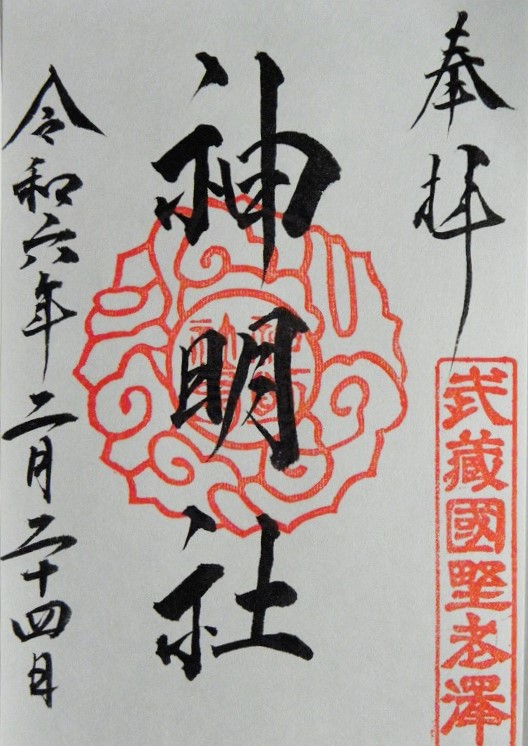 奉拝
武藏國野老澤
神明社
令和六年二月二十四日